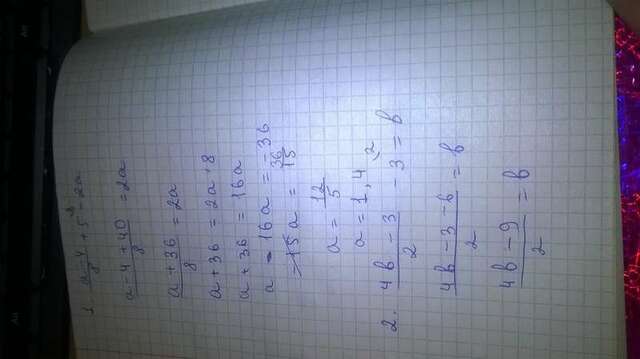 1. (a-4)/8 + 5^8 = 2a
(a-4+40)/8 = 2a
(a+36)/8 = 2a
a+36 = 2a·8
a+36 = 16a
a-16a = -36
-15a = 36/15
a = 12/5
a = 1,4
2. (4b-3)/2 - 3^2 = b
(4b-3-6)/2 = b
(4b-9)/2 = b